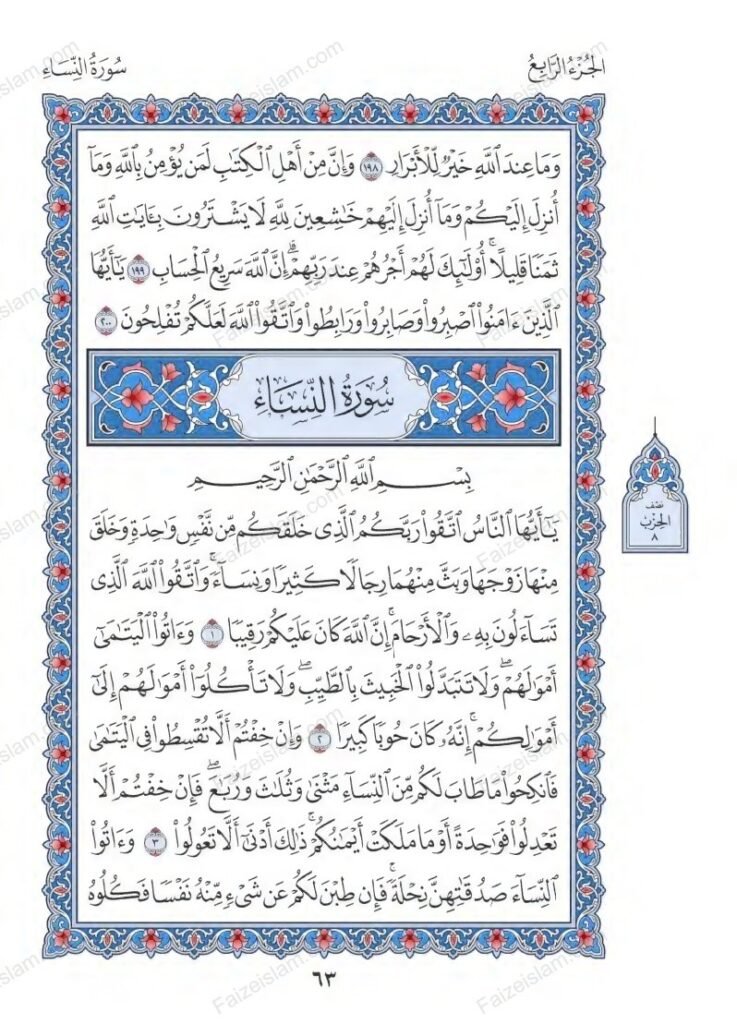 الجُزْءُ الرَّابِعُ
سُورَةُ النِّسَاءِ
وَمَا عِندَ ٱللَّهِ خَيْرٌ لِّلْأَبْرَارِ ١٩٨ وَإِنَّ مِنْ أَهْلِ ٱلْكِتَٰبِ لَمَن يُؤْمِنُ بِٱللَّهِ وَمَآ
أُنزِلَ إِلَيْكُمْ وَمَآ أُنزِلَ إِلَيْهِمْ خَٰشِعِينَ لِلَّهِ لَا يَشْتَرُونَ بِـَٔايَٰتِ ٱللَّهِ
ثَمَنًا قَلِيلًا ۗ أُو۟لَٰٓئِكَ لَهُمْ أَجْرُهُمْ عِندَ رَبِّهِمْ ۗ إِنَّ ٱللَّهَ سَرِيعُ ٱلْحِسَابِ ١٩٩ يَٰٓأَيُّهَا
ٱلَّذِينَ ءَامَنُوا۟ ٱصْبِرُوا۟ وَصَابِرُوا۟ وَرَابِطُوا۟ وَٱتَّقُوا۟ ٱللَّهَ لَعَلَّكُمْ تُفْلِحُونَ ٢٠٠
سُورَةُ النِّسَاءِ
بِسْمِ ٱللَّهِ ٱلرَّحْمَٰنِ ٱلرَّحِيمِ
يَٰٓأَيُّهَا ٱلنَّاسُ ٱتَّقُوا۟ رَبَّكُمُ ٱلَّذِى خَلَقَكُم مِّن نَّفْسٍ وَٰحِدَةٍ وَخَلَقَ
مِنْهَا زَوْجَهَا وَبَثَّ مِنْهُمَا رِجَالًا كَثِيرًا وَنِسَآءً ۚ وَٱتَّقُوا۟ ٱللَّهَ ٱلَّذِى
تَسَآءَلُونَ بِهِۦ وَٱلْأَرْحَامَ ۚ إِنَّ ٱللَّهَ كَانَ عَلَيْكُمْ رَقِيبًا ١ وَءَاتُوا۟ ٱلْيَتَٰمَىٰٓ
أَمْوَٰلَهُمْ ۖ وَلَا تَتَبَدَّلُوا۟ ٱلْخَبِيثَ بِٱلطَّيِّبِ ۖ وَلَا تَأْكُلُوٓا۟ أَمْوَٰلَهُمْ إِلَىٰٓ
أَمْوَٰلِكُمْ ۚ إِنَّهُۥ كَانَ حُوبًا كَبِيرًا ٢ وَإِنْ خِفْتُمْ أَلَّا تُقْسِطُوا۟ فِى ٱلْيَتَٰمَىٰ
فَٱنكِحُوا۟ مَا طَابَ لَكُم مِّنَ ٱلنِّسَآءِ مَثْنَىٰ وَثُلَٰثَ وَرُبَٰعَ ۖ فَإِنْ خِفْتُمْ أَلَّا
تَعْدِلُوا۟ فَوَٰحِدَةً أَوْ مَا مَلَكَتْ أَيْمَٰنُكُمْ ۚ ذَٰلِكَ أَدْنَىٰٓ أَلَّا تَعُولُوا۟ ٣ وَءَاتُوا۟
ٱلنِّسَآءَ صَدُقَٰتِهِنَّ نِحْلَةً ۚ فَإِن طِبْنَ لَكُمْ عَن شَىْءٍ مِّنْهُ نَفْسًا فَكُلُوهُ
نصف
الحزب
٨
٦٣
Faizeislam.com